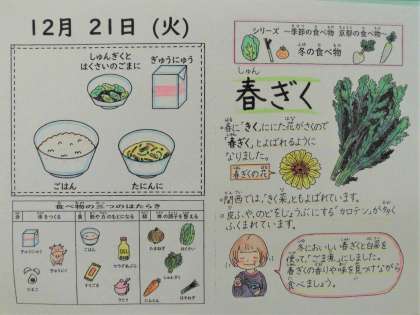 12月 21日 (火)
しゅんぎくと
はくさいのごまに
ぎゅうにゅう
ごはん
たにんに
食べ物の三つのはたらき
体をつくる
ぎゅうにゅう
ごはん
たまねぎ
はくさい
にんじん
シリーズ 季節の食べ物 京都の食べ物
冬の食べ物
しゅん
春ぎく
春に「きく」ににた花がさくので
「春ぎく」とよばれるように
なりました。
春ぎくの花
関西では、「きく菜」ともよばれています。
皮ふや、のどをじょうぶにする「カロテン」が多く
ふくまれています。
冬においしい春ぎくと白菜を
使って、「ごま煮」にしました。
春ぎくの香りや味を見つけながら
食べましょう。